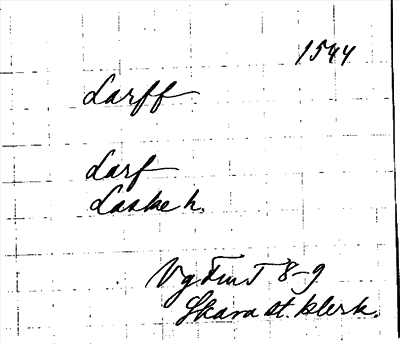 1544
Larff
Larf
Laske h.
Vg FmT 8-9
Skara st. klerk.